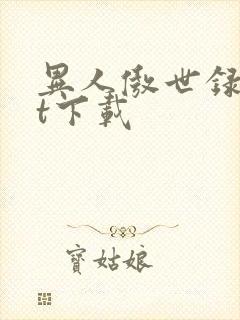 異人傲世録
t下載
寶姑娘